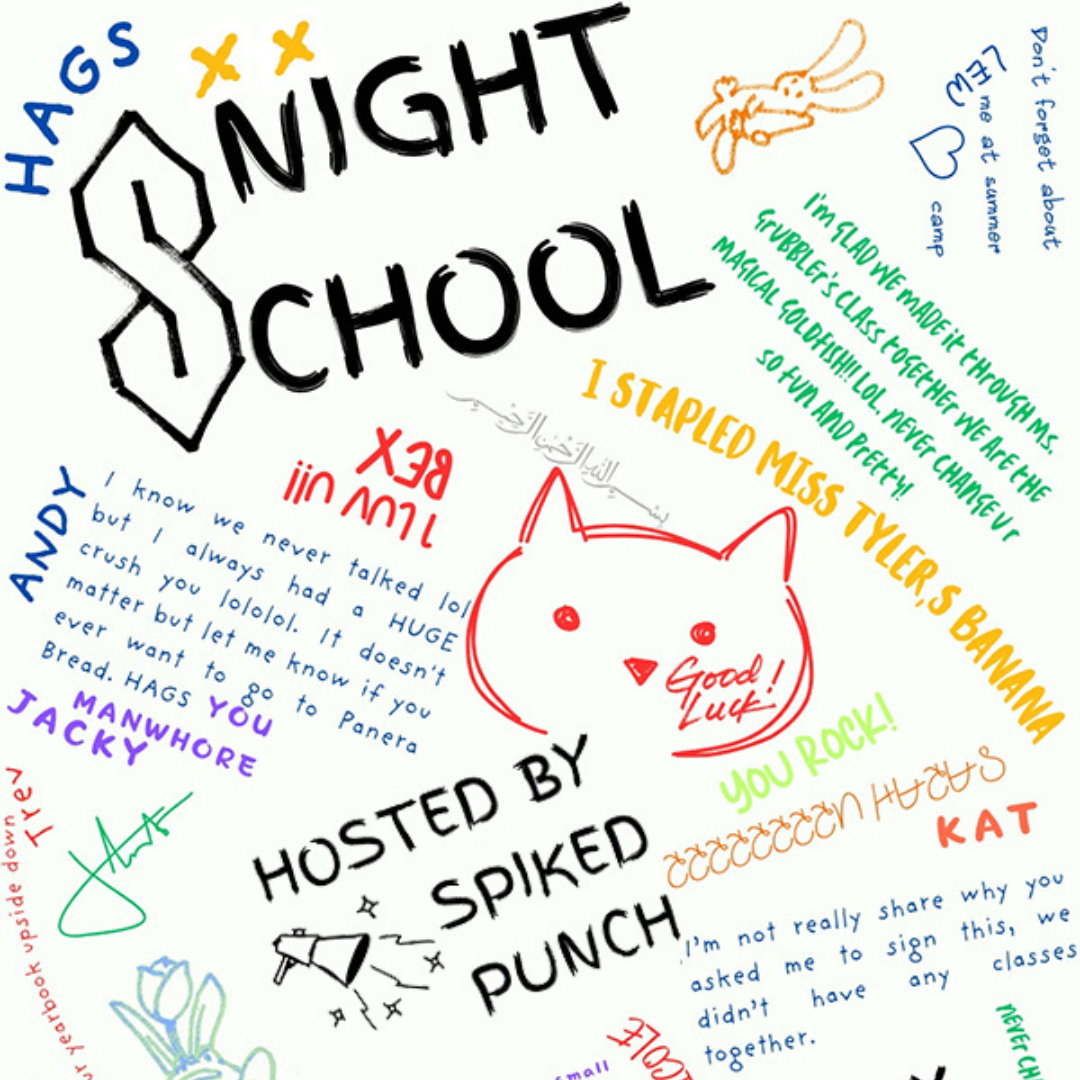 HAGS
NIGHT
SCHOOL
Don't forget about
me at summer
camp
I'm GLAD WE MADE it tHROUGH Ms.
GrUBBLEr's CLAss toGEtHEr WE ArE tHE
MAGICAL GOLDFISH!! LOL. NEVEr CHANGE Ur
SO FUN AND PrEttY!
I STAPLED MISS TYLER,S BANANA
بسم الله الرحمن الرحيم
I LUV Uii
BEX
ANDY
I know we never talked lol
but I always had a HUGE
crush you lololol. It doesn't
matter but let me know if you
ever want to go to Panera
Bread. HAGS
YOU
MANWHORE
JACKY
Good
Luck!
YOU ROCK!
SARAH
KAT
HOSTED BY
SPIKED
PUNCH
Trev
ur yearbook upside down
I'm not really share why you
asked me to sign this, we
didn't have any classes
together.
NEVEr CH
COLE
small